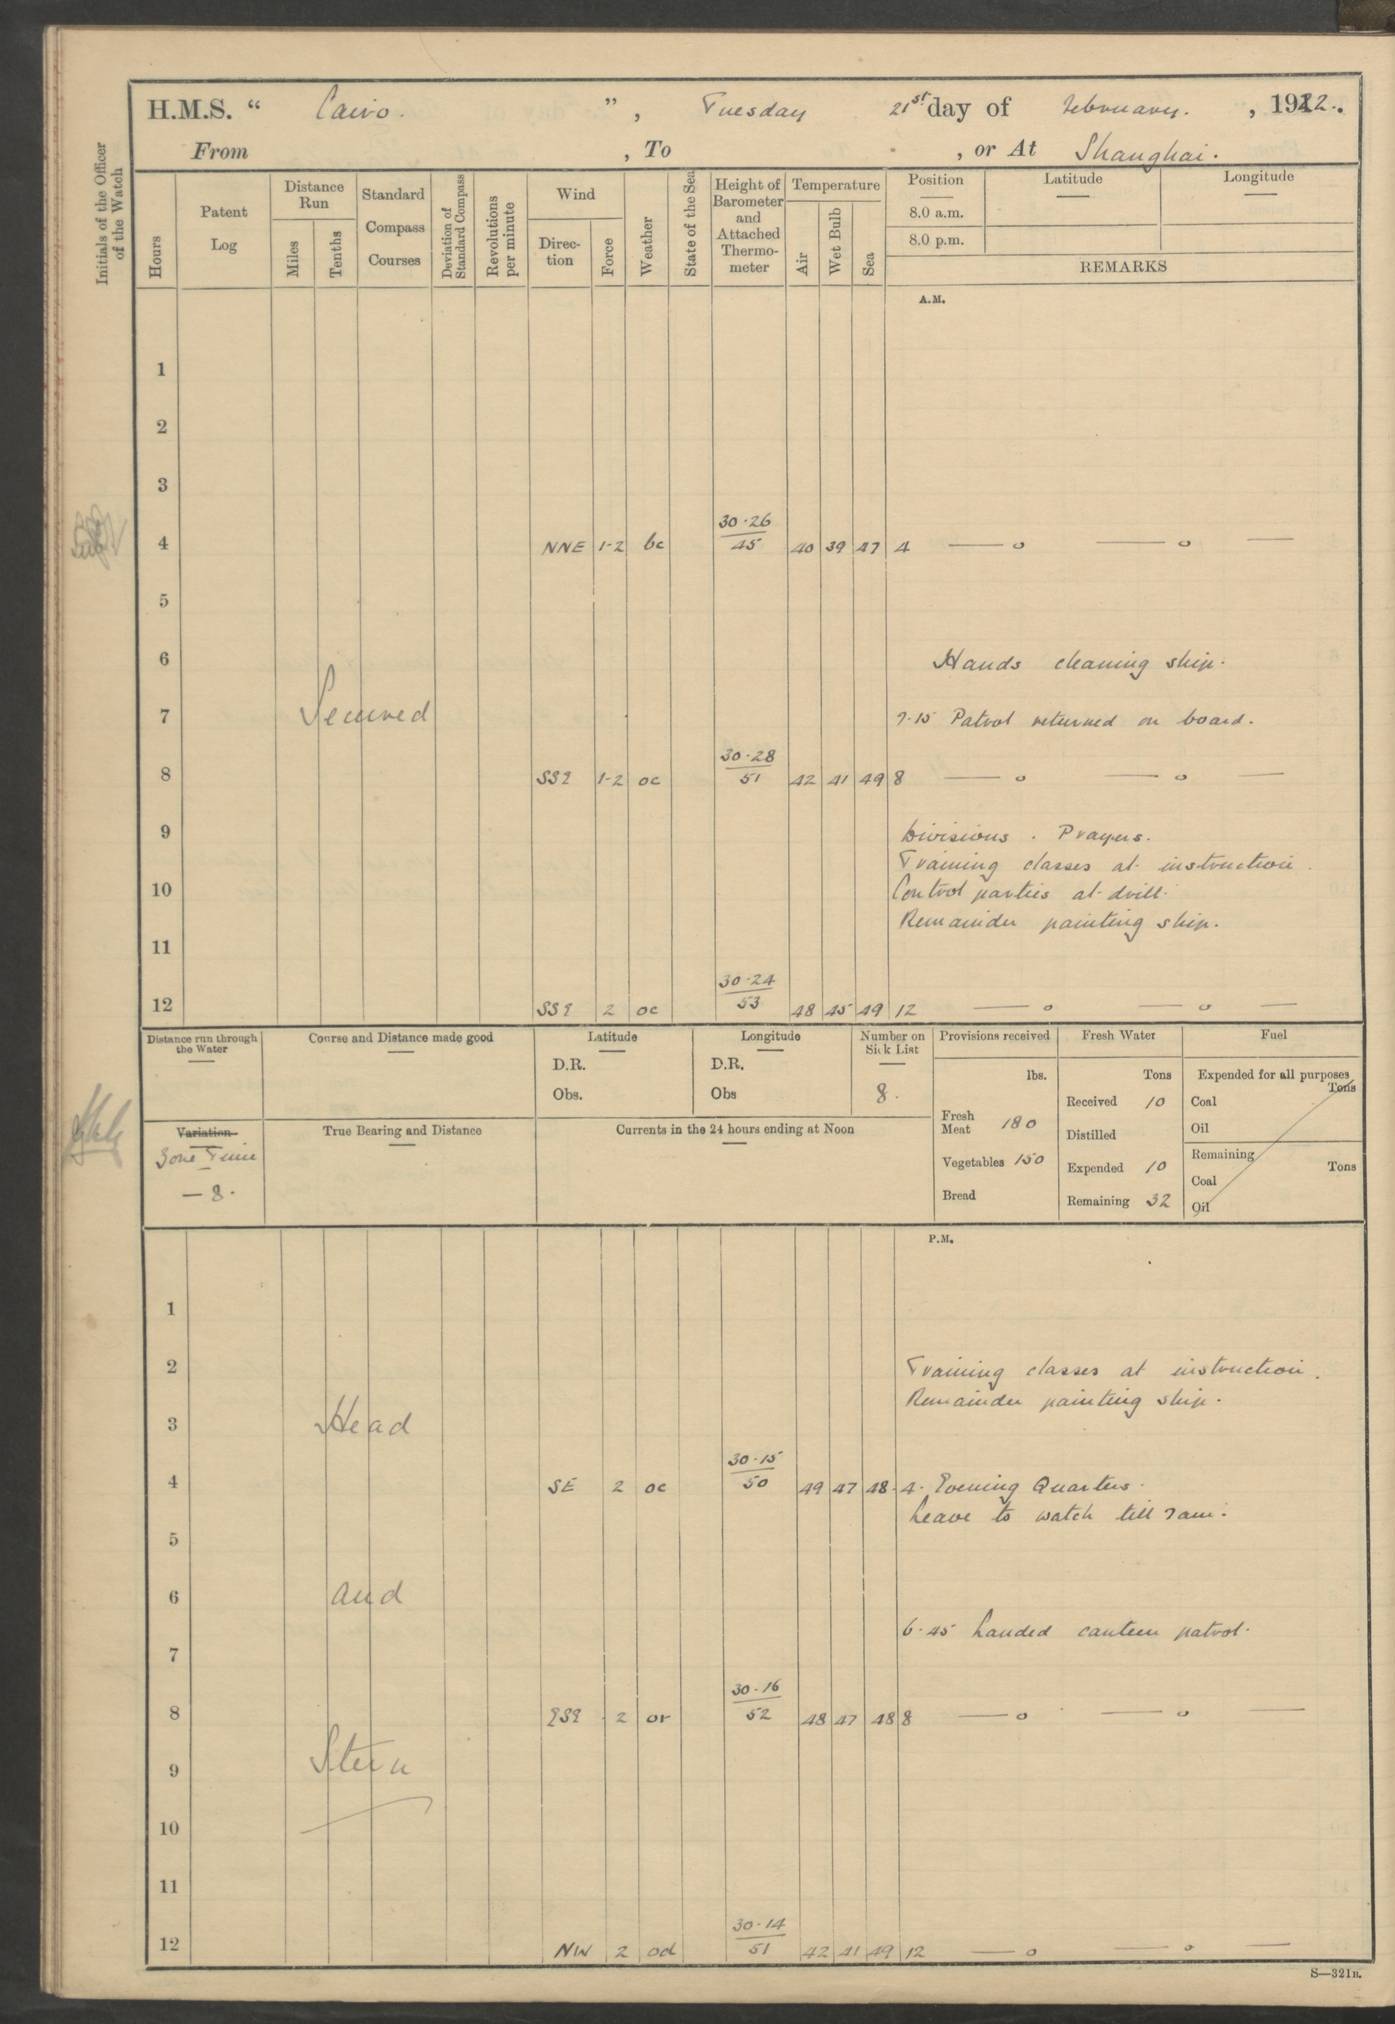 H.M.S. “ Cairo. ”, Tuesday 21st day of February. , 1922.
From , To , or At Shanghai.
Initials of the Officer of the Watch
Hours
Patent Log
Distance Run
Miles
Tenths
Standard Compass Courses
Deviation of Standard Compass
Revolutions per minute
Wind
Direc- tion
Force
Weather
State of the Sea
Height of Barometer and Attached Thermo- meter
Temperature
Air
Wet Bulb
Sea
Position
8.0 a.m.
8.0 p.m.
Latitude
Longitude
REMARKS
A.M.
1
2
3
4 NNE 1-2 bc 30·26 / 45 40 39 47 4 — o — o —
5
6 Hands cleaning ship.
7 Secured 7·15 Patrol returned on board.
8 SSE 1-2 oc 30·28 / 51 42 41 49 8 — o — o —
9 Divisions . Prayers.
Training classes at instruction.
10 Control parties at drill.
Remainder painting ship.
11
12 SSE 2 oc 30·24 / 53 48 45 49 12 — o — o —
Distance run through the Water
Course and Distance made good
Latitude
D.R.
Obs.
Longitude
D.R.
Obs
Number on Sick List
8.
Provisions received
lbs.
Fresh Meat 180
Vegetables 150
Bread
Fresh Water
Tons
Received 10
Distilled
Expended 10
Remaining 32
Fuel
Expended for all purposes
Tons
Coal
Oil
Remaining
Tons
Coal
Oil
Variation
Zone Time
— 8.
True Bearing and Distance
Currents in the 24 hours ending at Noon
P.M.
1
2 Training classes at instruction.
Remainder painting ship.
3 Head
4 SE 2 oc 30·15 / 50 49 47 48 4. Evening Quarters.
Leave to watch till 7am.
5
6 and
6·45 Landed canteen patrol.
7
8 ESE 2 or 30·16 / 52 48 47 48 8 — o — o —
9 Stern
10
11
12 NW 2 od 30·14 / 51 42 41 49 12 — o — o —
S—321B.